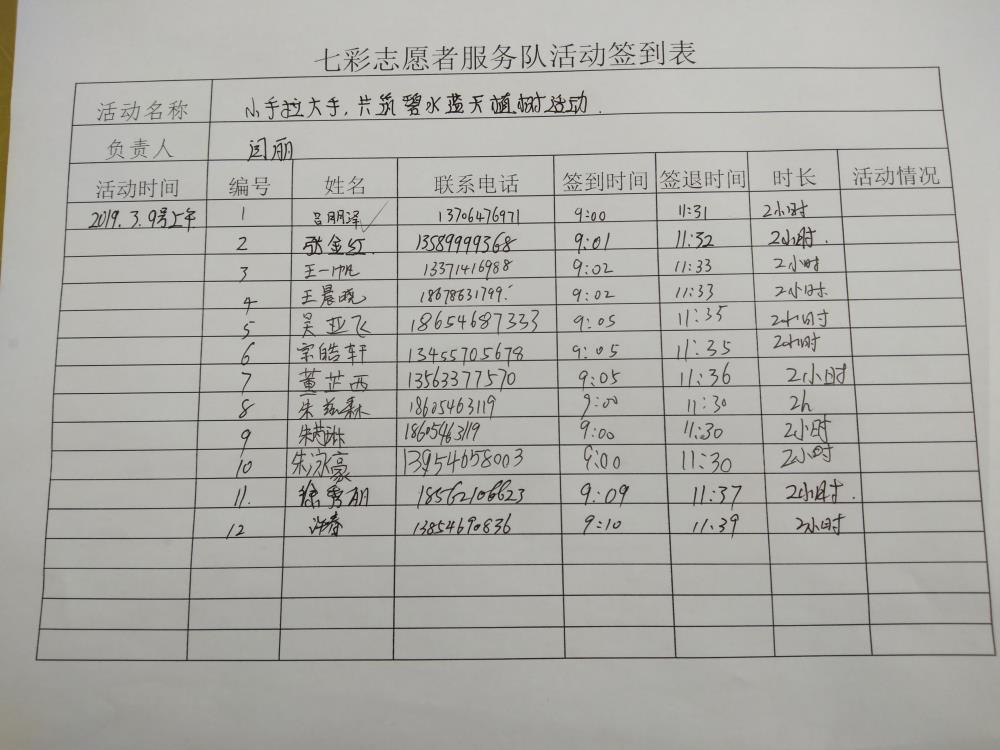 七彩志愿者服务队活动签到表
活动名称 小手拉大手,共筑碧水蓝天植树活动.
负责人 闫丽
活动时间 编号 姓名 联系电话 签到时间 签退时间 时长 活动情况
2019.3.9号上午 1 吕明泽 13706476971 9:00 11:31 2小时
2 张金红. 13589999368 9:01 11:32 2小时.
3 王一帆 13371416988 9:02 11:33 2小时
4 王晨晓 18678631799 9:02 11:33 2小时
5 吴亚飞 18654687333 9:05 11:35 2小时
6 宗皓轩 13455705678 9:05 11:35 2小时
7 董芷西 13563377570 9:05 11:36 2小时
8 朱 森 18605463119 9:00 11:30 2h
9 朱 琳 18605463119 9:00 11:30 2小时
10 朱泳豪 13954658003 9:00 11:30 2小时
11. 徐秀丽 18562106623 9:09 11:37 2小时.
12 许春 13854690836 9:10 11:39 2小时